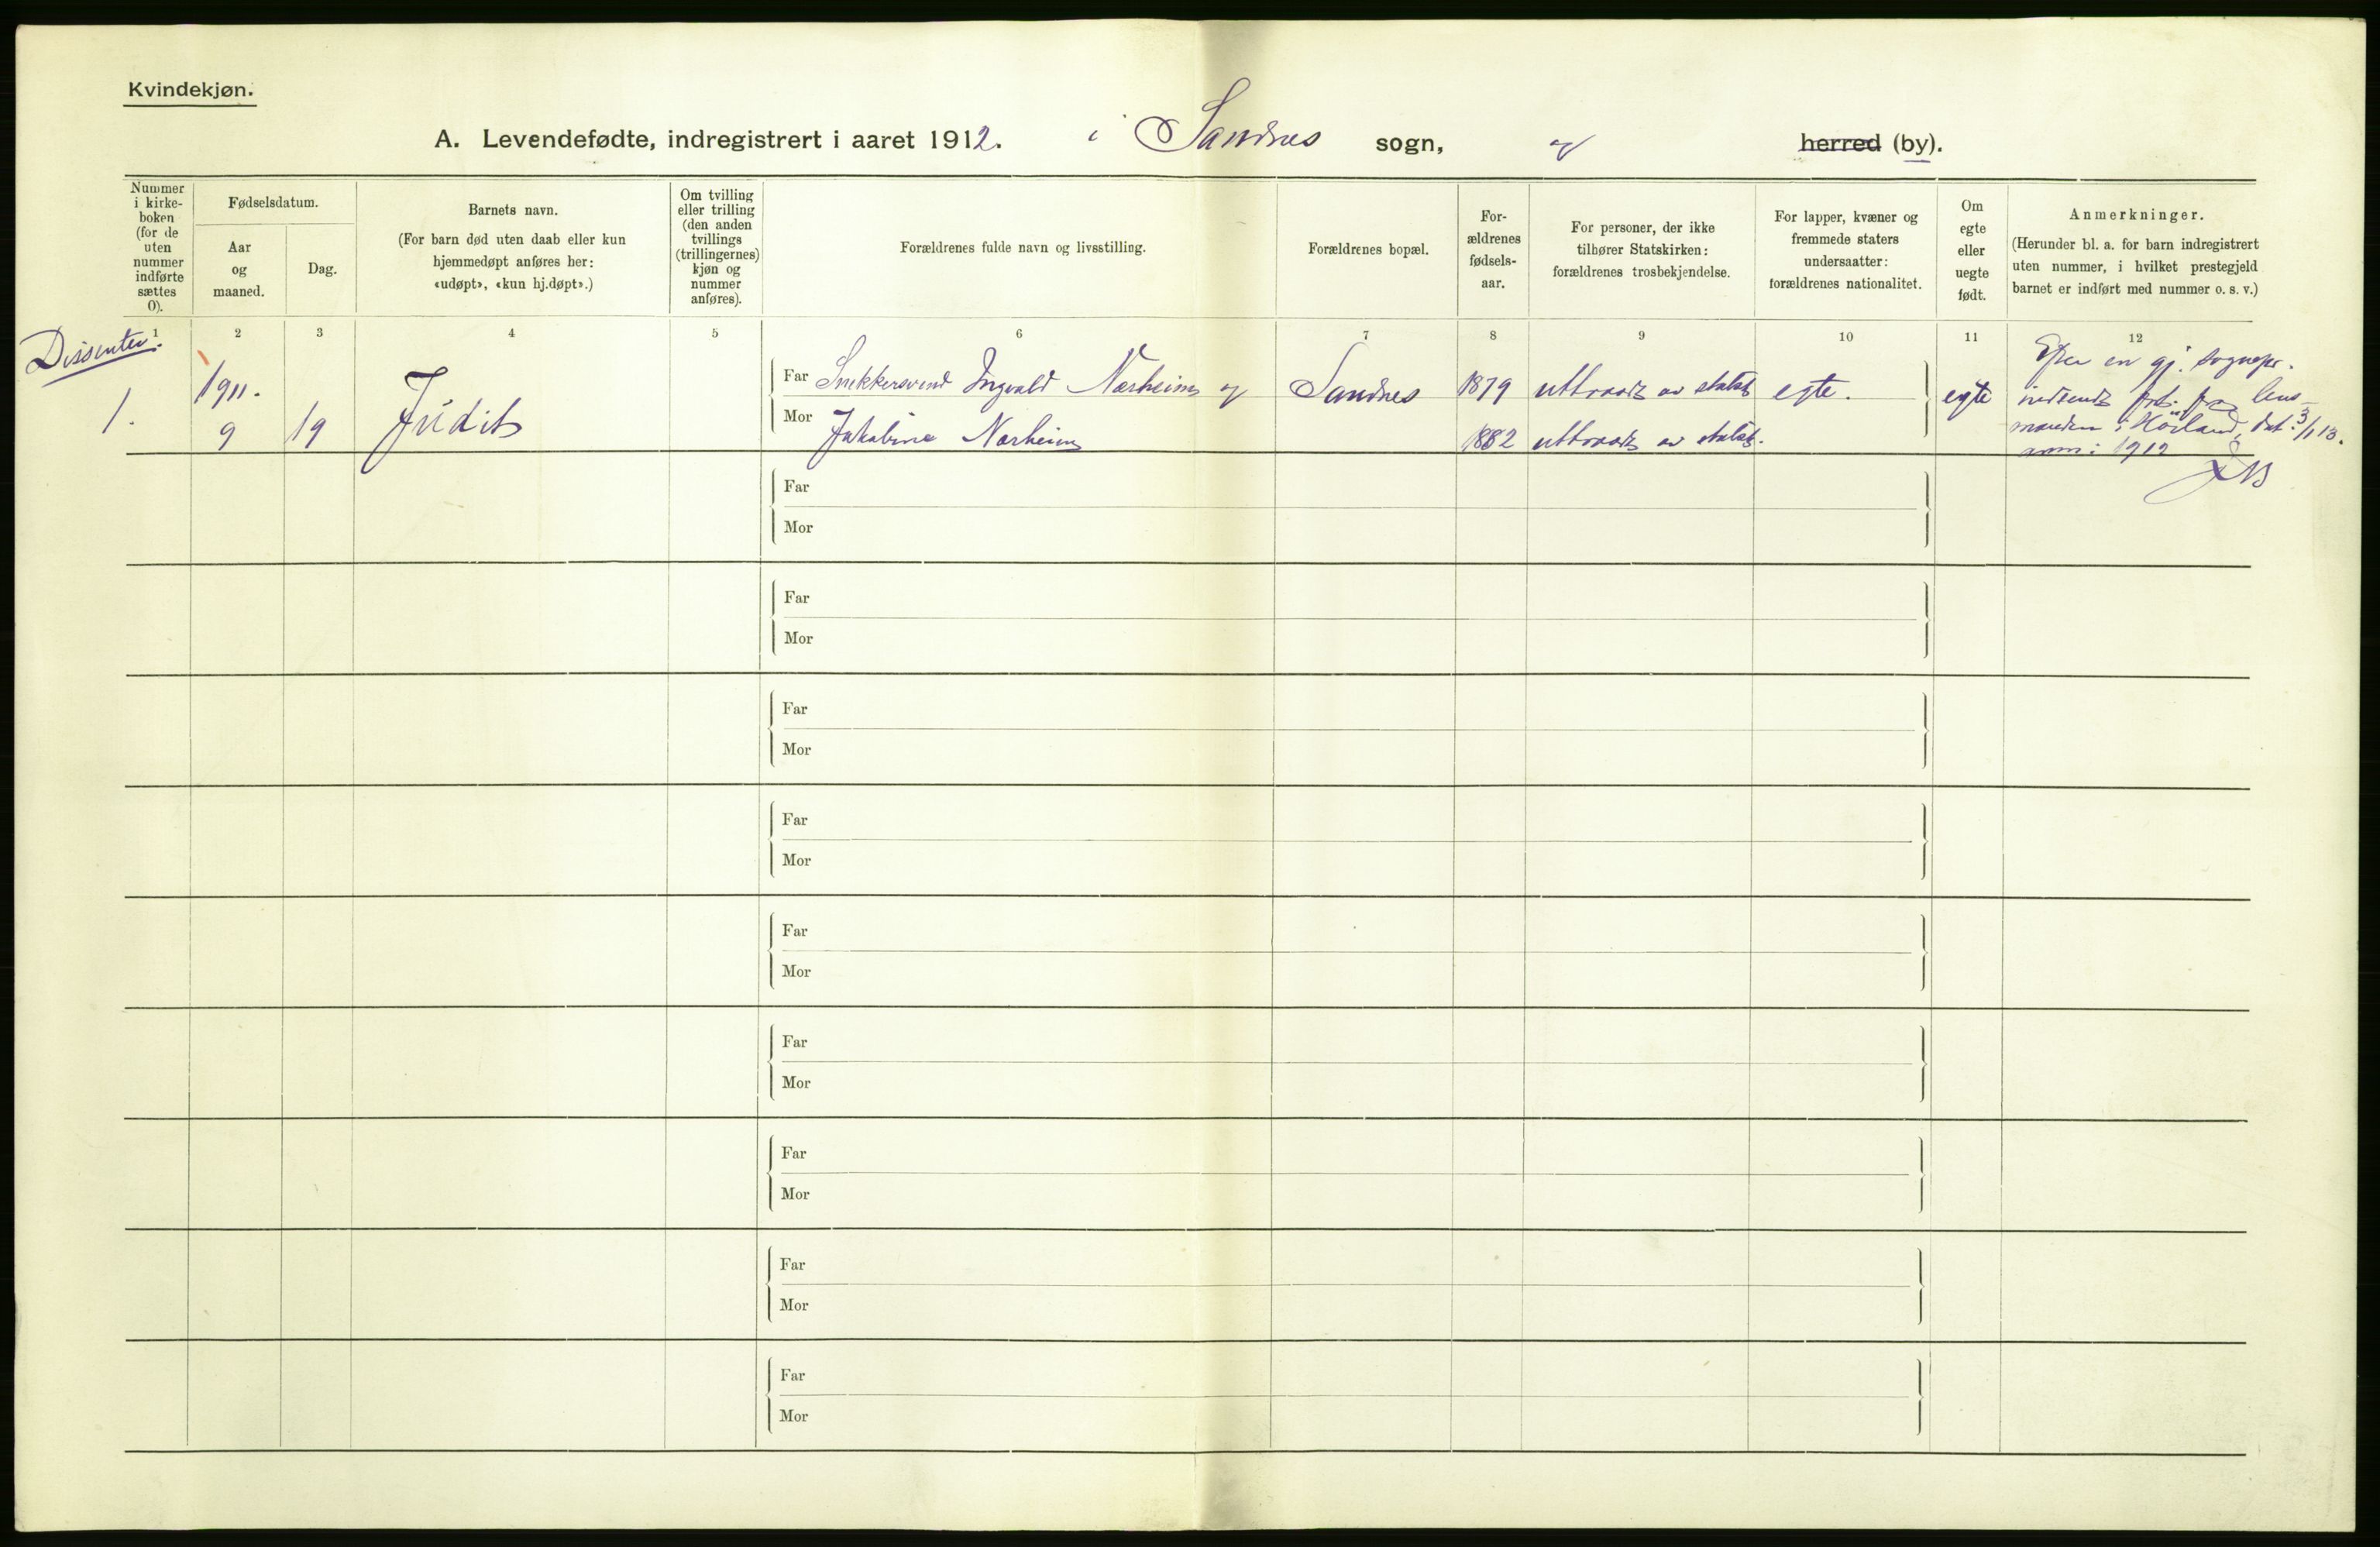 Kvindekjøn.
A. Levendefødte, indregistrert i aaret 1912. i Sandnes sogn, og herred (by).
Nummer i kirke-boken (for de uten nummer indførte sættes 0).
Fødselsdatum.
Aar og maaned.
Dag.
Barnets navn.
(For barn død uten daab eller kun
hjemmedøpt anføres her:
«udøpt», «kun hj.døpt».)
Om tvilling
eller trilling
(den anden
tvillings
(trillingernes)
kjøn og
nummer
anføres).
Forældrenes fulde navn og livsstilling.
Forældrenes bopæl.
For-
ældrenes
fødsels-
aar.
For personer, der ikke
tilhører Statskirken:
forældrenes trosbekjendelse.
For lapper, kvæner og
fremmede staters
undersaatter:
forældrenes nationalitet.
Om
egte
eller
uegte
født.
Anmerkninger.
(Herunder bl. a. for barn indregistrert
uten nummer, i hvilket prestegjeld
barnet er indført med nummer o. s. v.)
1 2 3 4 5 6 7 8 9 10 11 12
Dissenter.
1. 1911. 9 19 Judit
Far Snekkersvend Ingvald Norheim og Sandnes 1879 uttraadt av statsk egte. egte
Mor Jakobine Norheim 1882 uttraadt av statsk.
Efter en gj. sognepr.
indsendt fort. fra lens-
manden i Höiland, dat. 3/1 13.
anm: 1912
Far
Mor
Far
Mor
Far
Mor
Far
Mor
Far
Mor
Far
Mor
Far
Mor
Far
Mor
Far
Mor